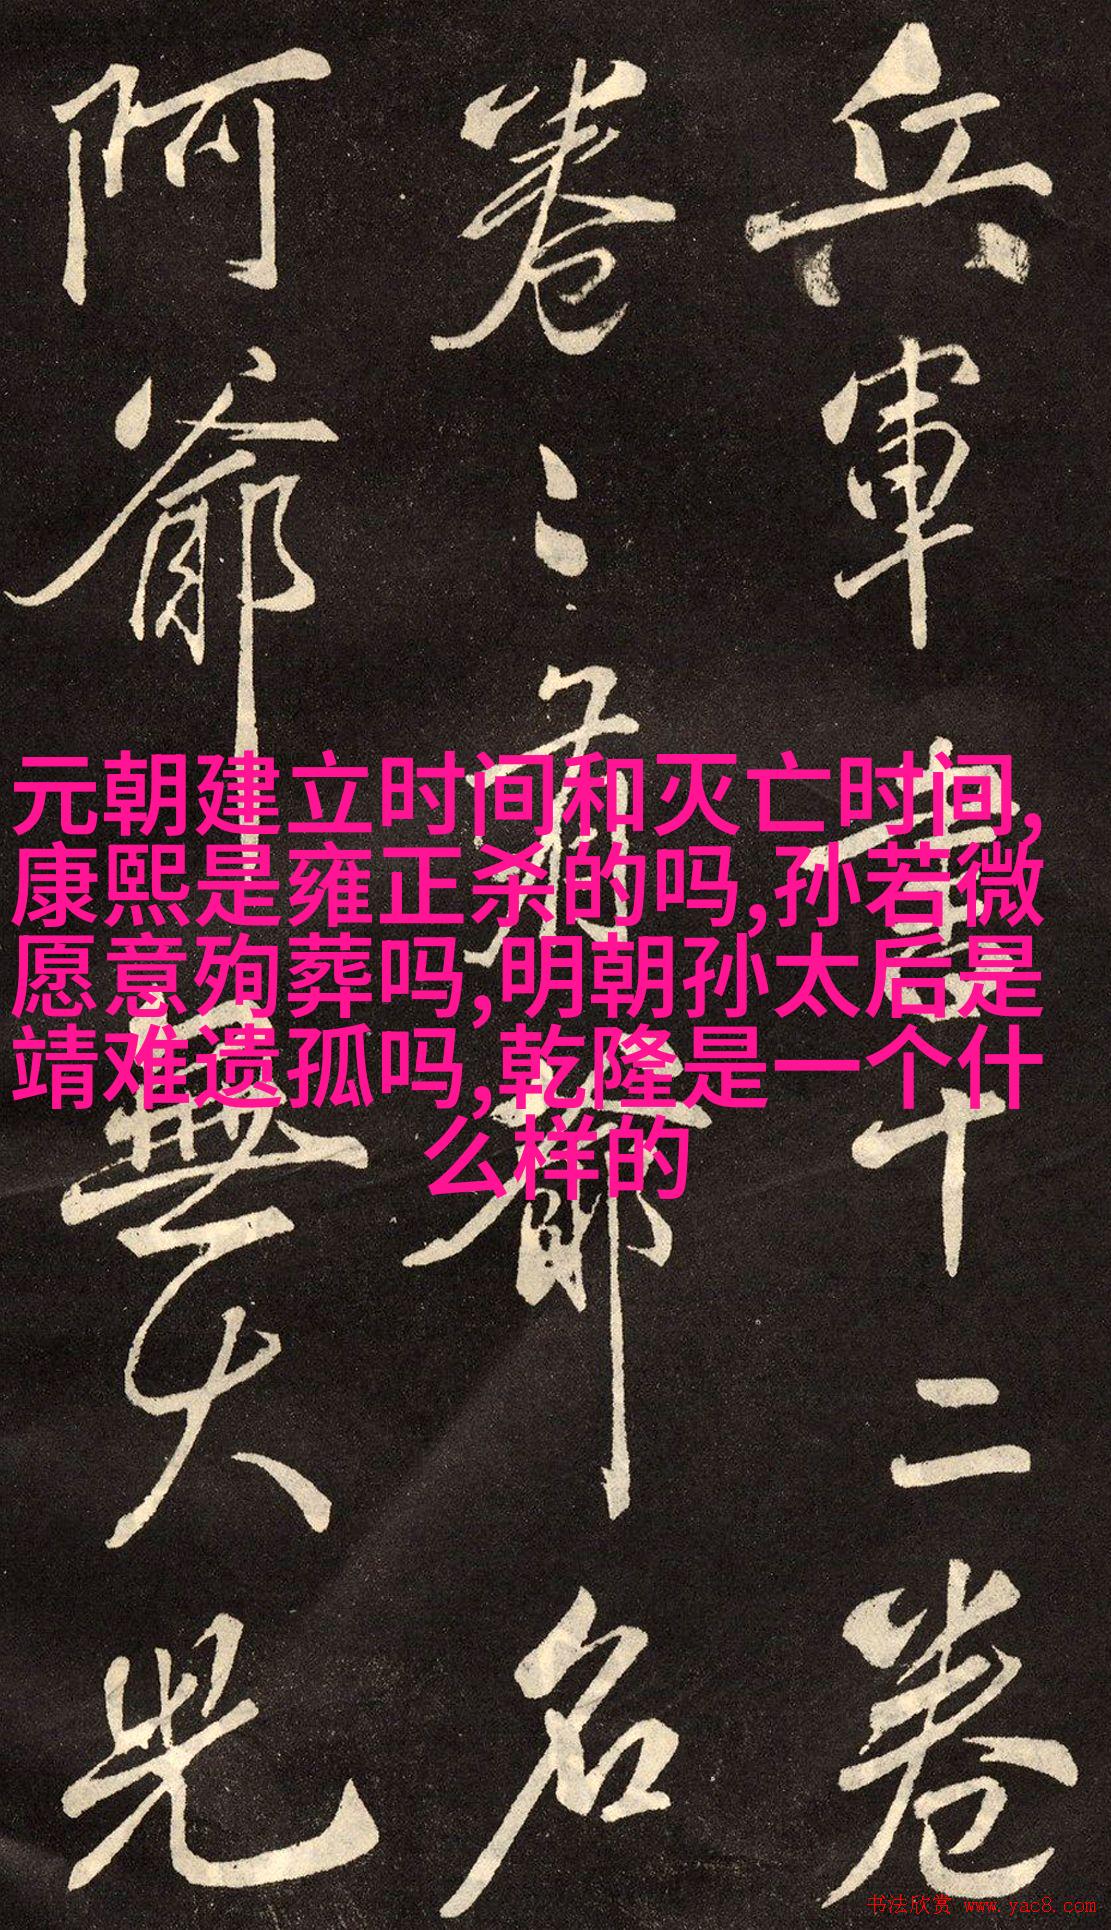 兵軍書十二卷
卷卷有爺名
阿爺無大兒
元朝建立时间和灭亡时间,
康熙是雍正杀的吗,孙若微
愿意殉葬吗,明朝孙太后是
靖难遗孤吗,乾隆是一个什
么样的
书法欣赏 www.yac8.com